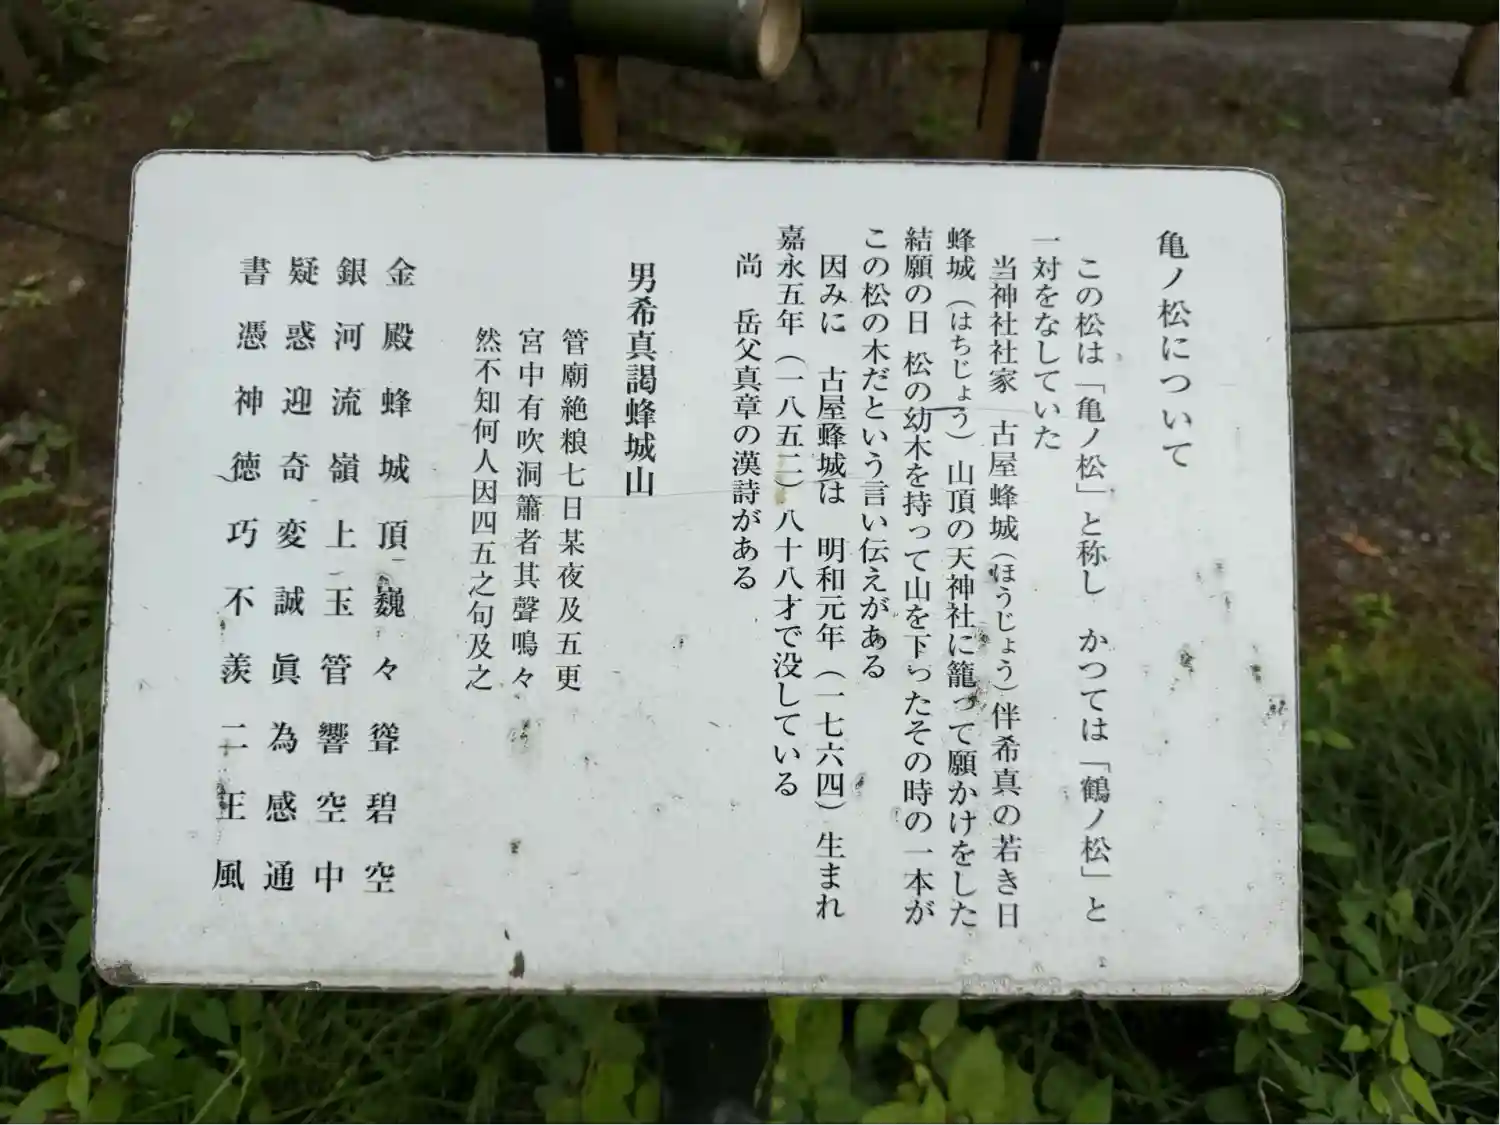 亀ノ松について
この松は「亀ノ松」と称し　かつては「鶴ノ松」と
一対をなしていた
当神社社家　古屋蜂城（ほうじょう）伴希真の若き日
蜂城（はちじょう）山頂の天神社に籠って願かけをした
結願の日　松の幼木を持って山を下ったその時の一本が
この松の木だという言い伝えがある
因みに　古屋蜂城は　明和元年（一七六四）生まれ
嘉永五年（一八五二）八十八才で没している
尚　岳父真章の漢詩がある
男希真謁蜂城山
管廟絶粮七日某夜及五更
宮中有吹洞簫者其聲鳴々
然不知何人因四五之句及之
金殿蜂城頂巍々聳碧空
銀河流嶺上玉管響空中
疑惑迎奇変誠眞為感通
書憑神徳巧不羨二王風